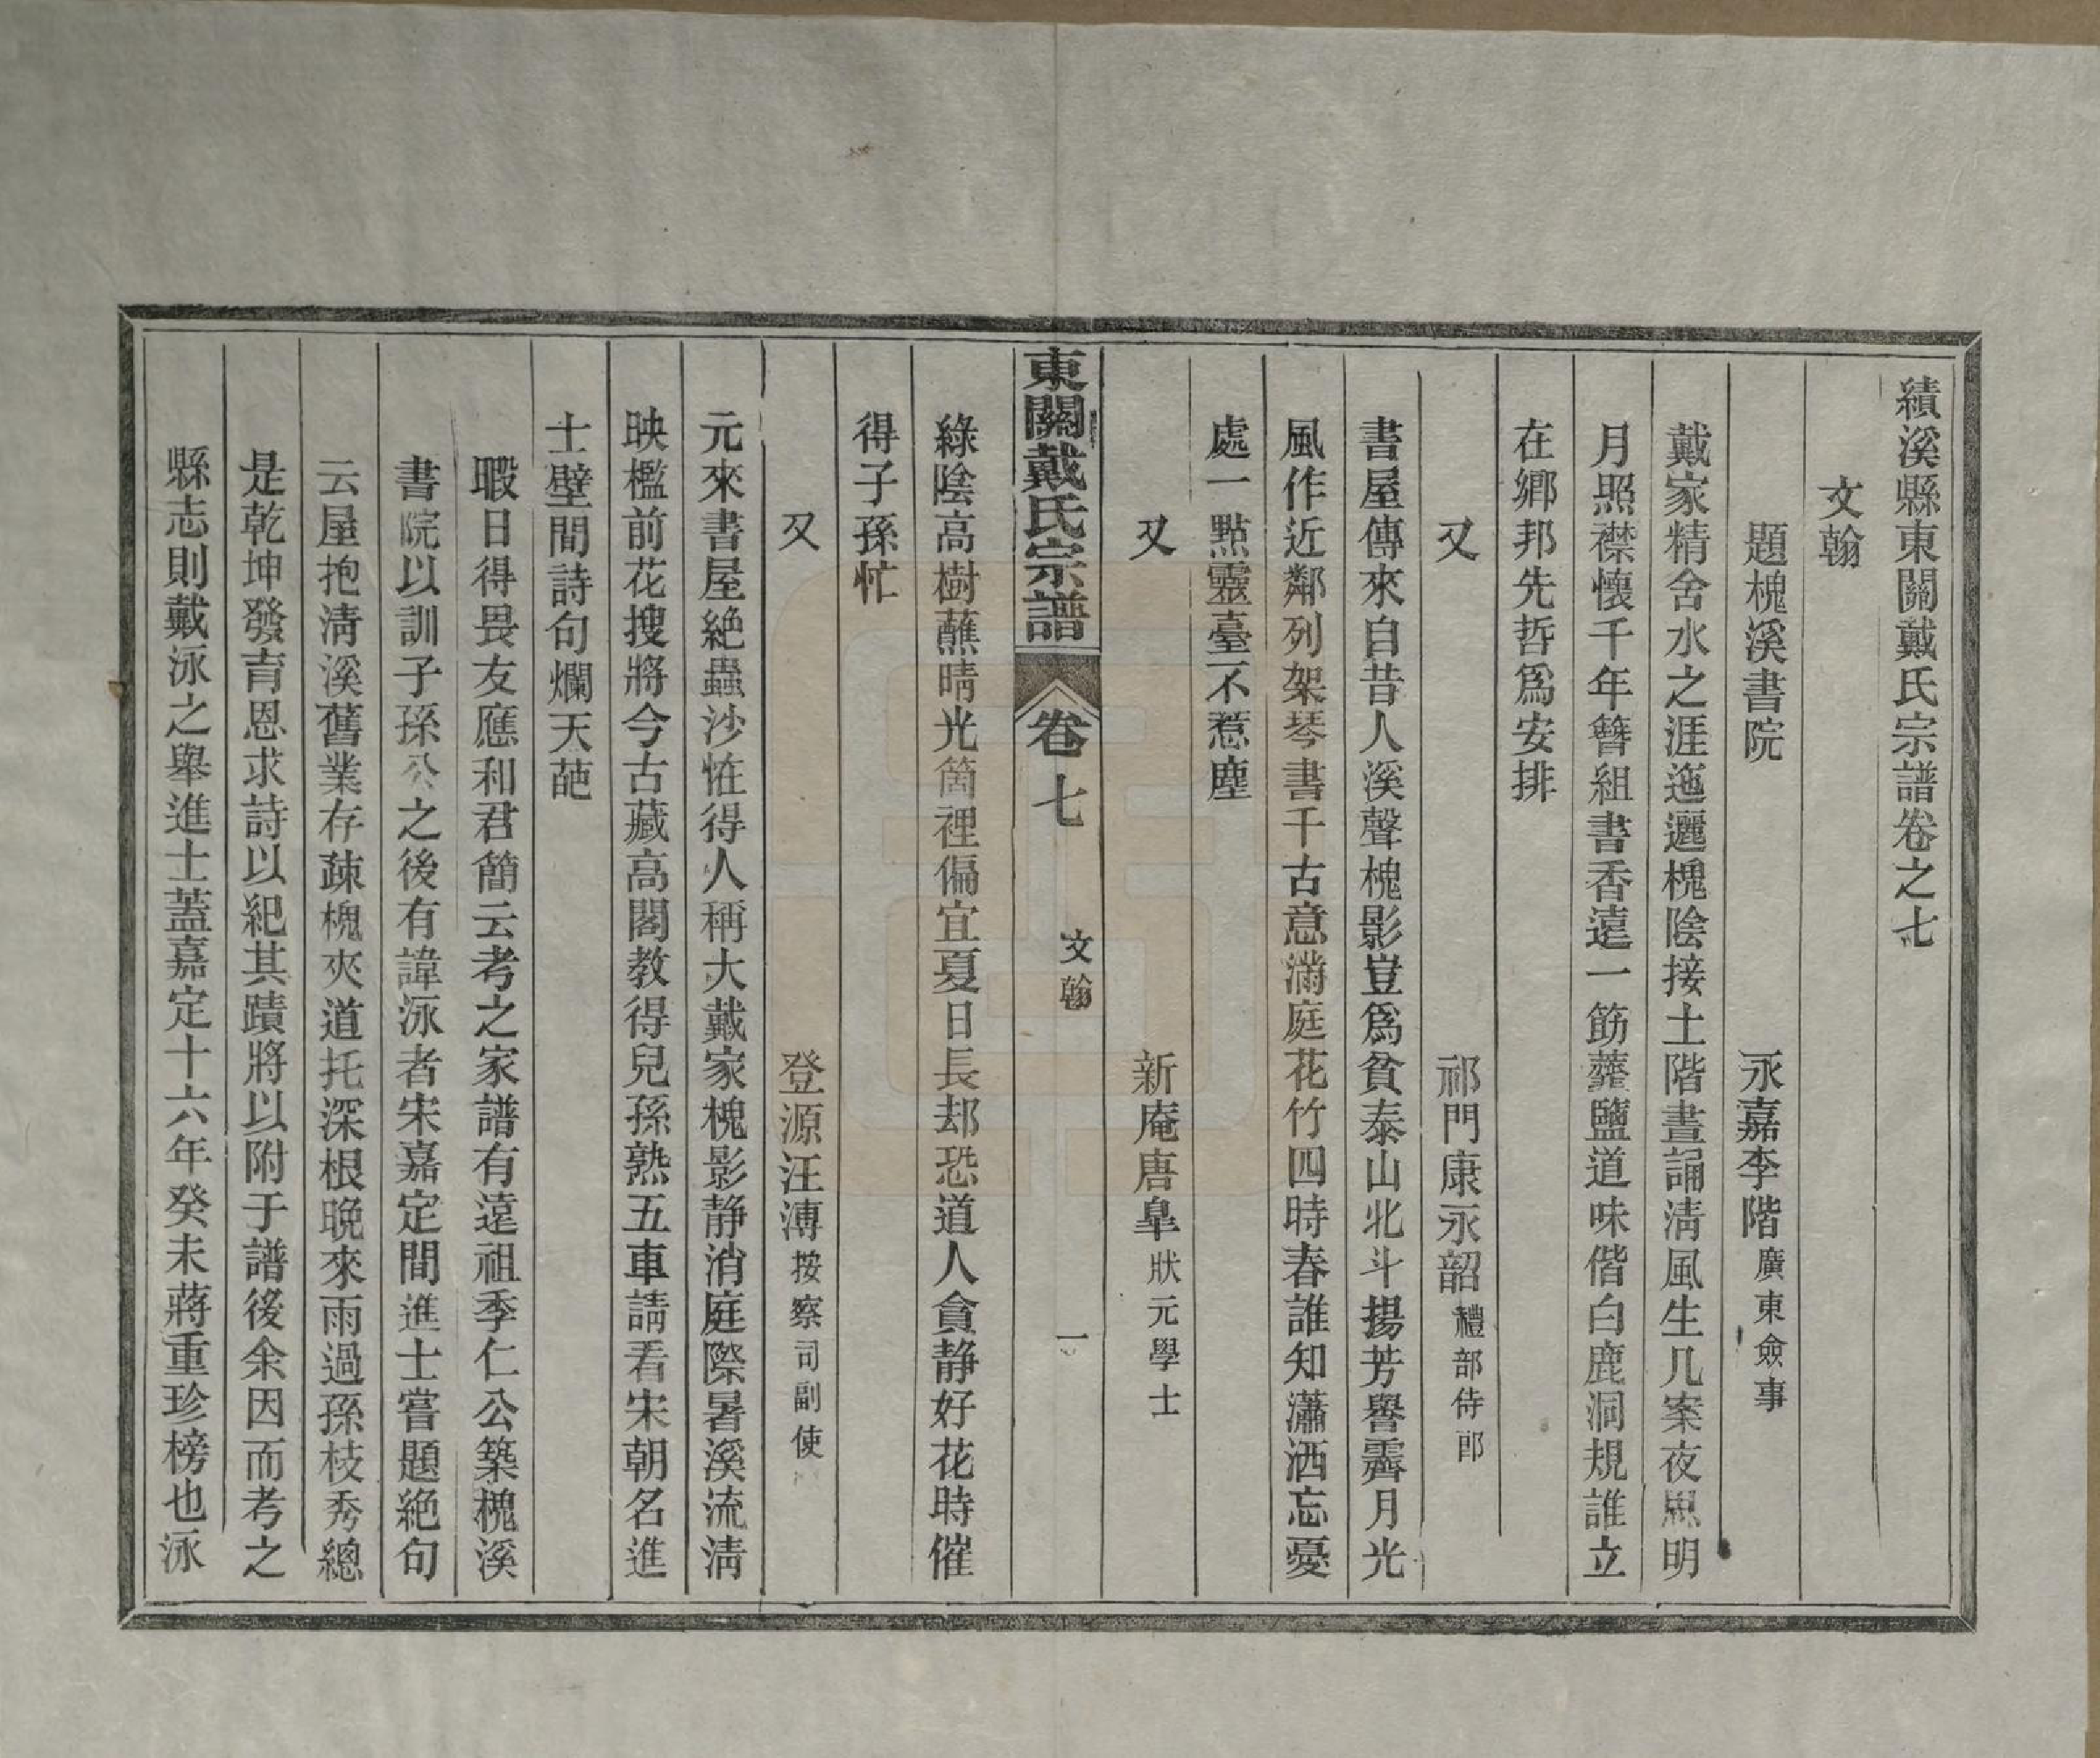 績溪縣東關戴氏宗譜卷之七
文翰
題槐溪書院　永嘉李階廣東僉事
戴家精舍水之涯迤邐槐陰接土階晝誦淸風生几案夜思明
月照襟懷千年簪組書香遠一筯虀鹽道味偕白鹿洞規誰立
在鄉邦先哲爲安排
又　祁門康永韶禮部侍郎
書屋傳來自昔人溪聲槐影豈爲貧泰山北斗揚芳譽霽月光
風作近鄰列架琴書千古意滿庭花竹四時春誰知瀟洒忘憂
處一點靈臺不惹塵
又　新庵唐皐狀元學士
東關戴氏宗譜　卷七　文翰　一
綠陰高樹蘸晴光箇裡偏宜夏日長却恐道人貪静好花時催
得子孫忙
又　登源汪溥按察司副使
元來書屋絶蟲沙恠得人稱大戴家槐影静消庭際暑溪流淸
映檻前花搜將今古藏高閣教得兒孫熟五車請看宋朝名進
士壁間詩句爛天葩
暇日得畏友應和君簡云考之家譜有遠祖季仁公築槐溪
書院以訓子孫公之後有諱泳者宋嘉定間進士嘗題絶句
云屋抱淸溪舊業存疎槐夾道托深根晚來雨過孫枝秀總
是乾坤發育恩求詩以紀其蹟將以附于譜後余因而考之
縣志則戴泳之舉進士蓋嘉定十六年癸未蔣重珍榜也泳